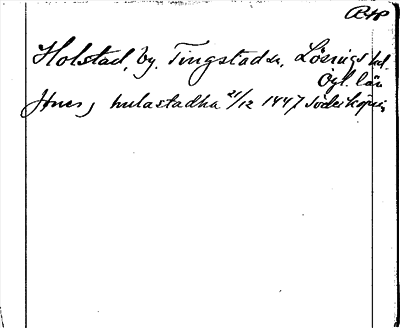 Holstad, by. Tingstad sn, Lösings hd.
Ögl. län
hulastadha 21/12 1447 Söderköping